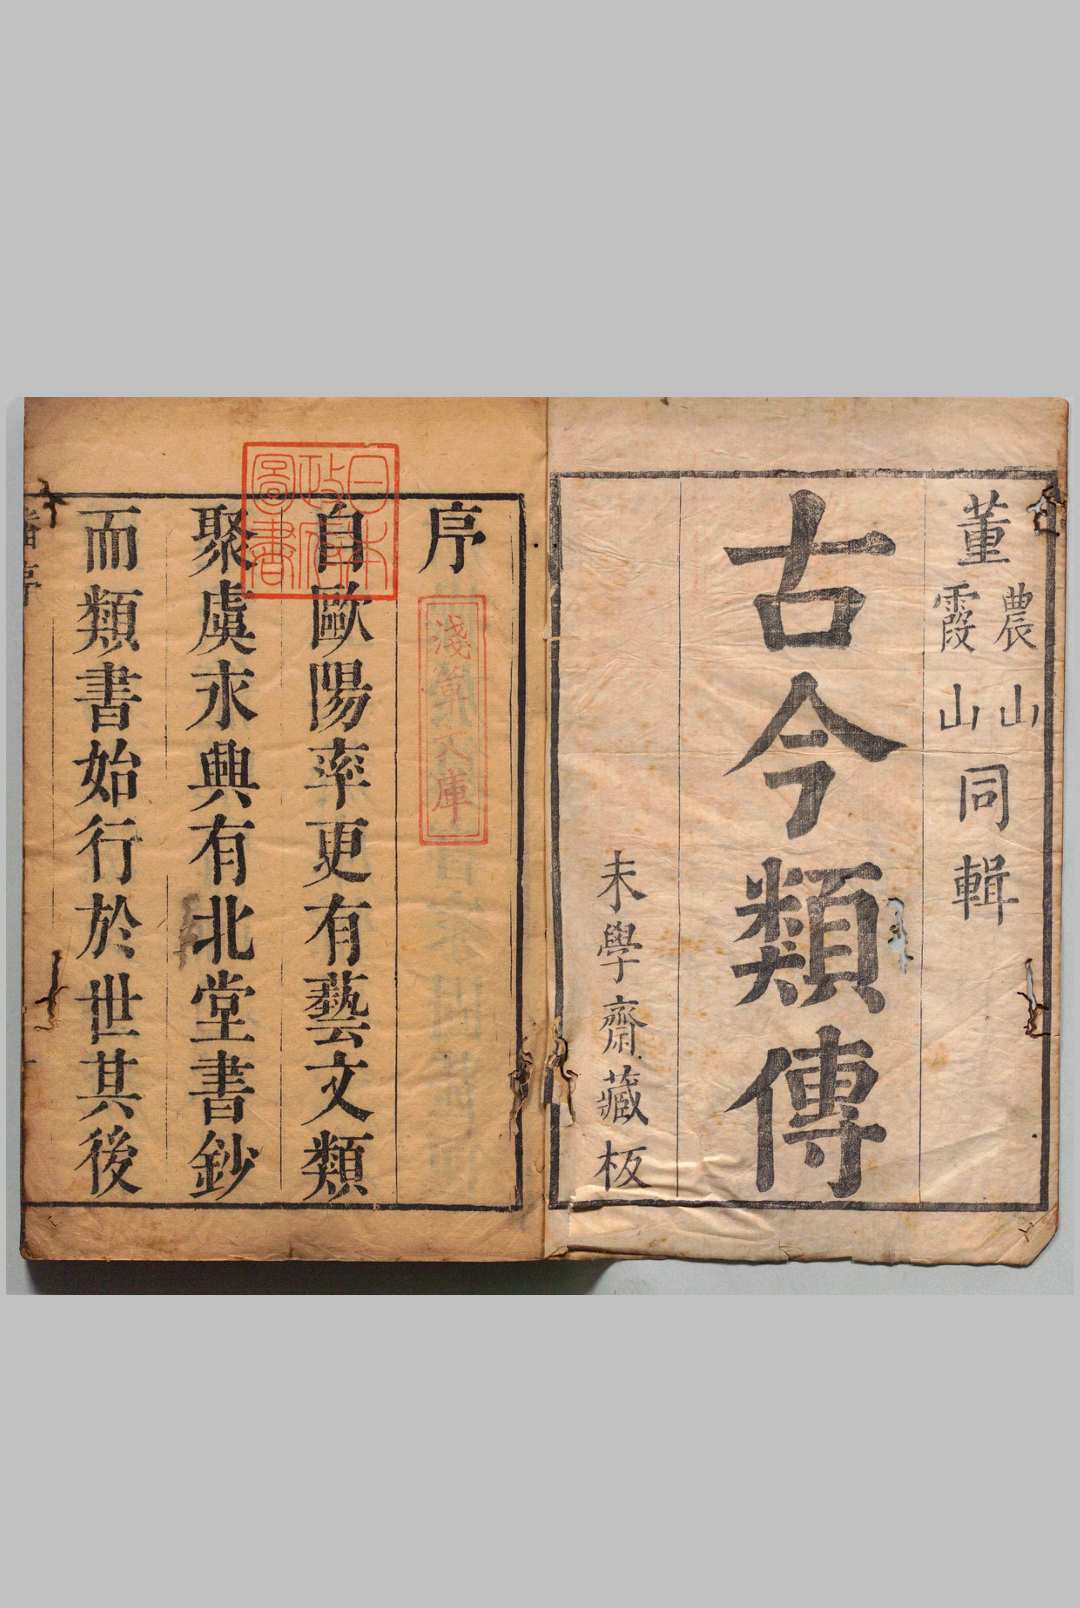 董農山霞山同輯
古今類傳
未學齋藏板
序
自歐陽率更有藝文類
聚虞永興有北堂書鈔
而類書始行於世其後
日本
政府
圖書
淺草文庫